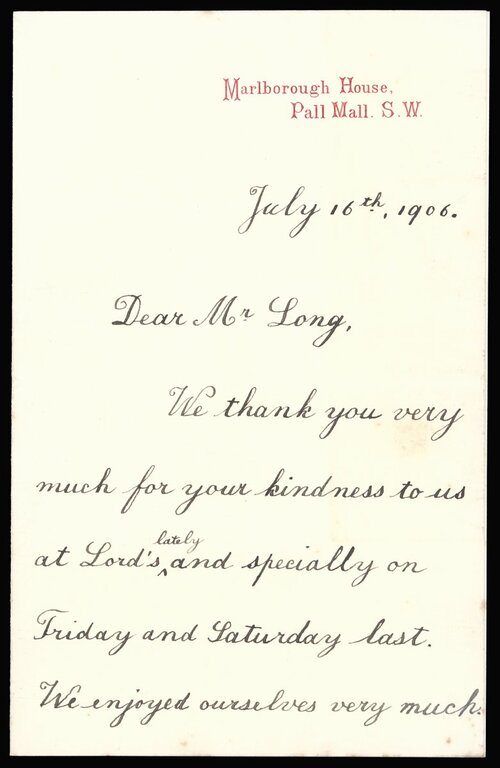 Marlborough House,
Pall Mall. S.W.
July 16th, 1906.
Dear Mr Long,
We thank you very
much for your kindness to us
at Lord's, lately and specially on
Friday and Saturday last.
We enjoyed ourselves very much.